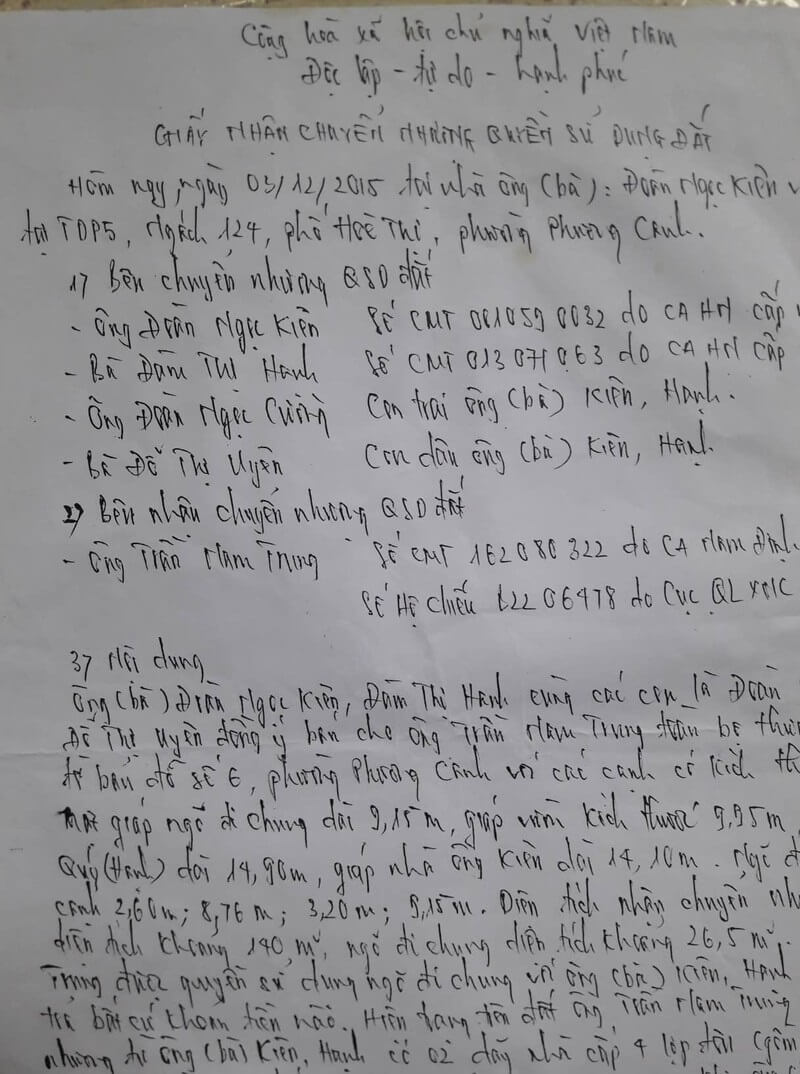 Cộng hoà xã hội chủ nghĩa Việt Nam
Độc lập - tự do - hạnh phúc
GIẤY NHẬN CHUYỂN NHƯỢNG QUYỀN SỬ DỤNG ĐẤT
Hôm nay, ngày 03/12/2015 tại nhà ông (bà): Đoàn Ngọc Kiên
tại TDP5, Ngách 124, phố Hoè Thị, phường Phương Canh.
1/ Bên chuyển nhượng QSD đất
- Ông Đoàn Ngọc Kiên Số CMT 0010590032 do CA HN cấp
- Bà Đàm Thị Hạnh Số CMT 013071063 do CA HN cấp
- Ông Đoàn Ngọc Cường Con trai ông (bà) Kiên, Hạnh.
- Bà Đỗ Thị Uyên Con dâu ông (bà) Kiên, Hạnh
2/ Bên nhận chuyển nhượng QSD đất
- Ông Trần Nam Trung Số CMT 162080322 do CA Nam Định
Số Hộ chiếu 2206478 do Cục QLXNC
3/ Nội dung
Ông (bà) Đoàn Ngọc Kiên, Đàm Thị Hạnh cùng các con là Đoàn
Đỗ Thị Uyên đồng ý bán cho ông Trần Nam Trung toàn bộ
tờ bản đồ số 6, phường Phương Canh với các cạnh có kích
Mặt giáp ngõ đi chung dài 9,15m, giáp kích thước 9,95m,
Quý (Hạnh) dài 14,90m, giáp nhà ông Kiên dài 14,10m. Ngõ
cạnh 2,60m; 8,76m; 3,20m; 9,15m. Diện tích nhận chuyển
diện tích khoảng 140 m², ngõ đi chung diện tích khoảng 26,5 m².
Trung được quyền sử dụng ngõ đi chung với ông (bà) Kiên, Hạnh
trả bất cứ khoản tiền nào. Hiện trạng trên đất ông Trần Nam Trung
nhượng từ ông (bà) Kiên, Hạnh có 02 dãy nhà cấp 4 lợp (gồm